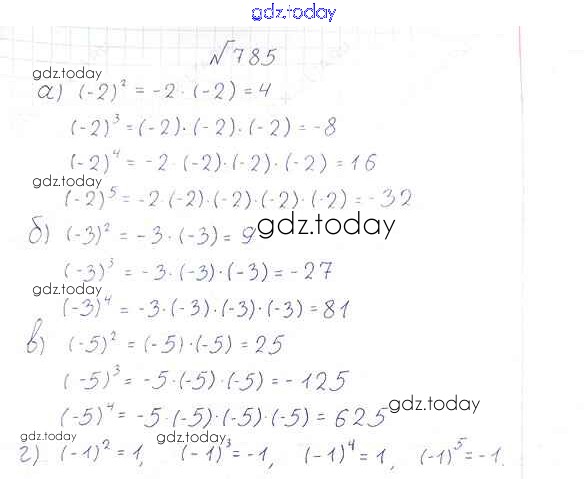 gdz.today
№785
gdz.today
а) (-2)² = -2 · (-2) = 4
(-2)³ = (-2) · (-2) · (-2) = -8
(-2)⁴ = -2 · (-2) · (-2) · (-2) = 16
gdz.today
(-2)⁵ = -2 · (-2) · (-2) · (-2) · (-2) = -32
б) (-3)² = -3 · (-3) = 9
gdz.today
(-3)³ = -3 · (-3) · (-3) = -27
gdz.today
(-3)⁴ = -3 · (-3) · (-3) · (-3) = 81
в) (-5)² = (-5) · (-5) = 25
(-5)³ = -5 · (-5) · (-5) = -125
(-5)⁴ = -5 · (-5) · (-5) · (-5) = 625
gdz.today
gdz.today gdz.today
г) (-1)² = 1, (-1)³ = -1, (-1)⁴ = 1, (-1)⁵ = -1.